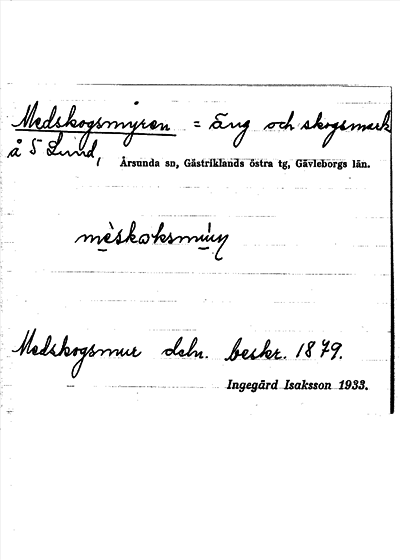 Medskogsmyren = äng och skogsmark
å 5 Lund, Årsunda sn, Gästriklands östra tg, Gävleborgs län.
Medskogsmur dsbr. beskr. 1879.
Ingegärd Isaksson 1933.